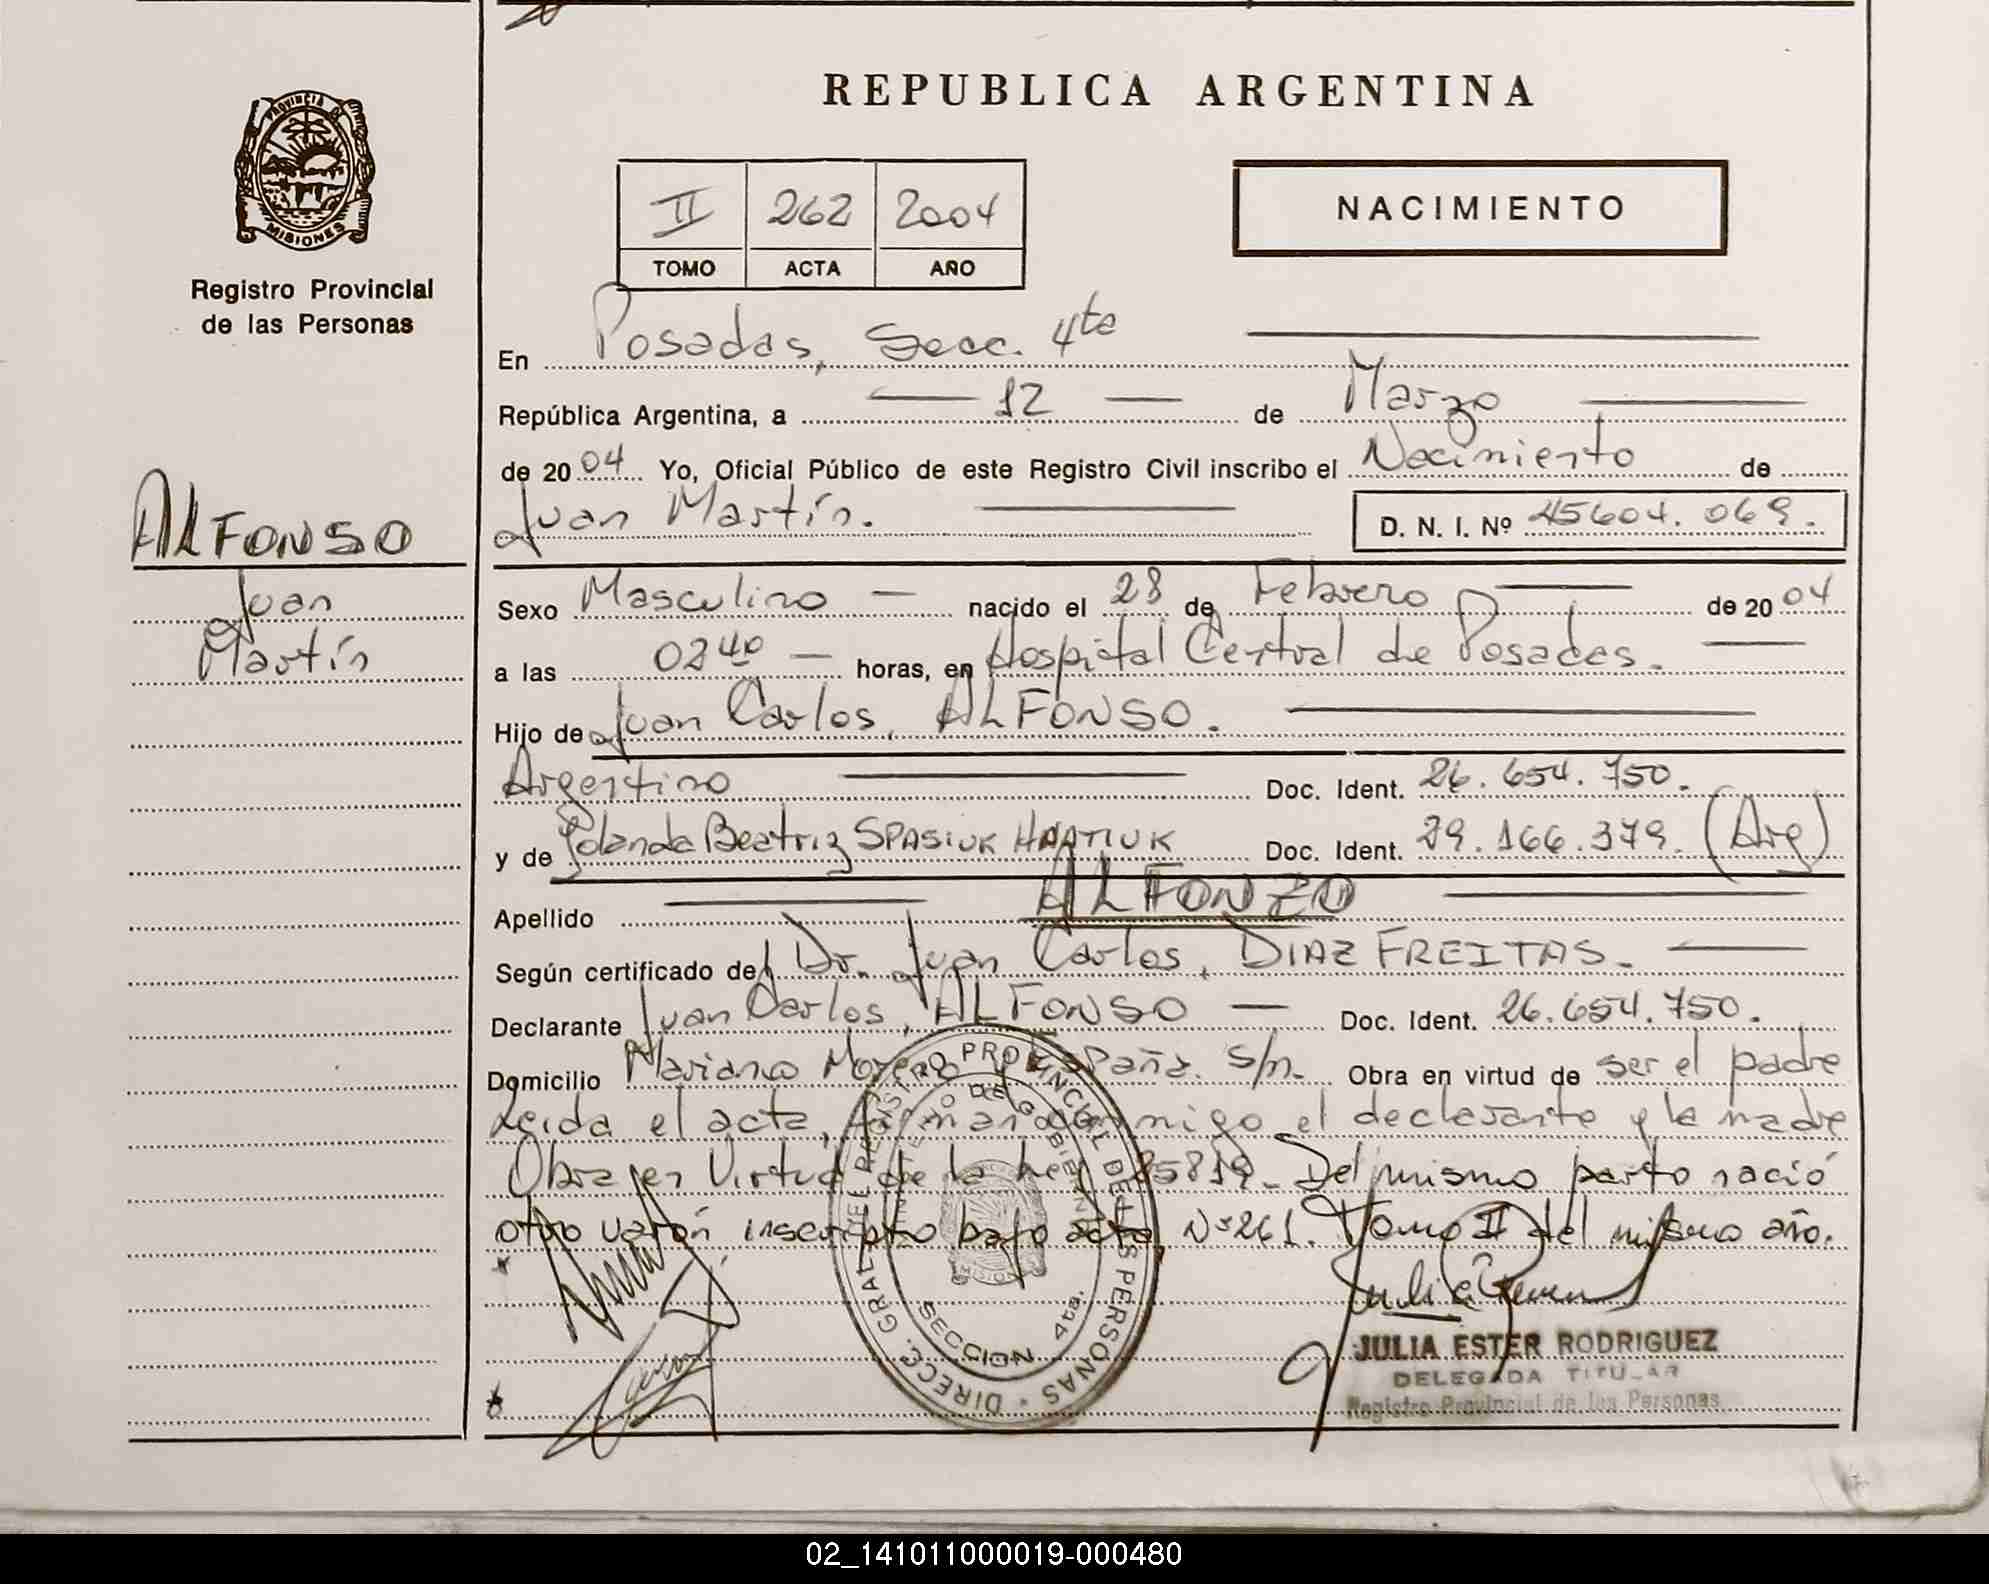 REPUBLICA ARGENTINA
PROVINCIA DE
MISIONES
Registro Provincial
de las Personas
II 262 2004
TOMO ACTA AÑO
NACIMIENTO
En Posadas, Secc. 4ta
República Argentina, a 12 de Marzo
de 2004 Yo, Oficial Público de este Registro Civil inscribo el Nacimiento de
Juan Martín. D. N. I. Nº 45604.069.
ALFONSO
Juan
Martín
Sexo Masculino nacido el 28 de Febrero de 2004
a las 0240 horas, en Hospital Central de Posadas.
Hijo de Juan Carlos, ALFONSO.
Argentino Doc. Ident. 26.654.750.
y de Yolanda Beatriz SPASIUK HNATIUK Doc. Ident. 29.166.379. (Arg)
Apellido ALFONZO
Según certificado del Dr. Juan Carlos, DIAZ FREITAS.
Declarante Juan Carlos, ALFONSO Doc. Ident. 26.654.750.
Domicilio Mariano Moreno y España. S/n. Obra en virtud de ser el padre
Leida el acta, firman conmigo el declarante y la madre
Obra en Virtud de la Ley 25819. Del mismo parto nació
otro varón inscripto bajo acta Nº 261. Tomo II del mismo año.
DIRECC. GRAL. DEL REGISTRO PROVINCIAL DE LAS PERSONAS
SECCION 4ta.
MISIONES
JULIA ESTER RODRIGUEZ
DELEGADA TITULAR
Registro Provincial de las Personas
02_141011000019-000480